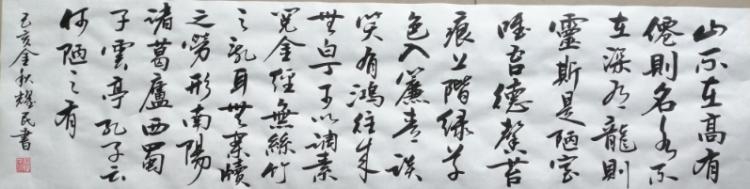 山不在高有
僊則名水不
在深有龍則
靈斯是陋室
唯吾德馨苔
痕上階緑草
色入簾青談
笑有鴻往来
無白丁可以調素
閱金經無絲竹
之亂耳無案牘
之勞形南陽
諸葛廬西蜀
子雲亭孔子云
何陋之有
己亥金秋耀民書